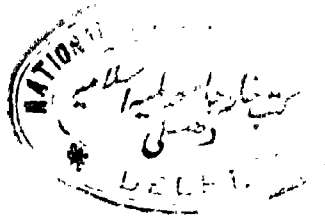 NATIONAL
کتب خانہ جامعہ ملیہ اسلامیہ
دہلی
DELHI